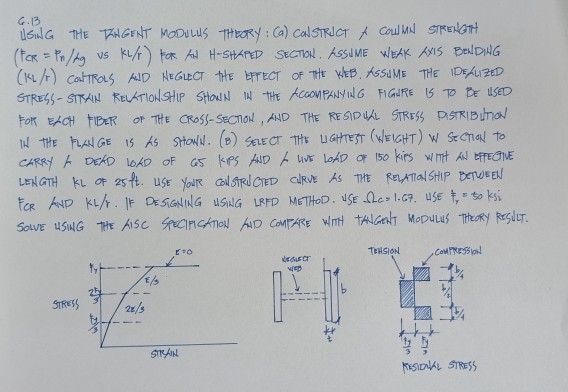 6.13
USING THE TANGENT MODULUS THEORY: (a) CONSTRUCT A COLUMN STRENGTH
(FCR = Pn/Ag VS KL/r) FOR AN H-SHAPED SECTION. ASSUME WEAK AXIS BENDING
(KL/r) CONTROLS AND NEGLECT THE EFFECT OF THE WEB. ASSUME THE IDEALIZED
STRESS-STRAIN RELATIONSHIP SHOWN IN THE ACCOMPANYING FIGURE IS TO BE USED
FOR EACH FIBER OF THE CROSS-SECTION, AND THE RESIDUAL STRESS DISTRIBUTION
IN THE FLANGE IS AS SHOWN. (B) SELECT THE LIGHTEST (WEIGHT) W SECTION TO
CARRY A DEAD LOAD OF 65 KIPS AND A LIVE LOAD OF 150 kips WITH AN EFFECTIVE
LENGTH KL OF 25ft. USE YOUR CONSTRUCTED CURVE AS THE RELATIONSHIP BETWEEN
FCR AND KL/r. IF DESIGNING USING LRFD METHOD. USE Ωc = 1.67. USE Fy = 50 ksi
SOLVE USING THE AISC SPECIFICATION AND COMPARE WITH TANGENT MODULUS THEORY RESULT.
E=0
Fy
E/3
2Fy/3
STRESS
2E/3
Fy/3
STRAIN
NEGLECT
WEB
b
t
TENSION
COMPRESSION
b/4
b/2
b/4
Fy/3 Fy/3
RESIDUAL STRESS